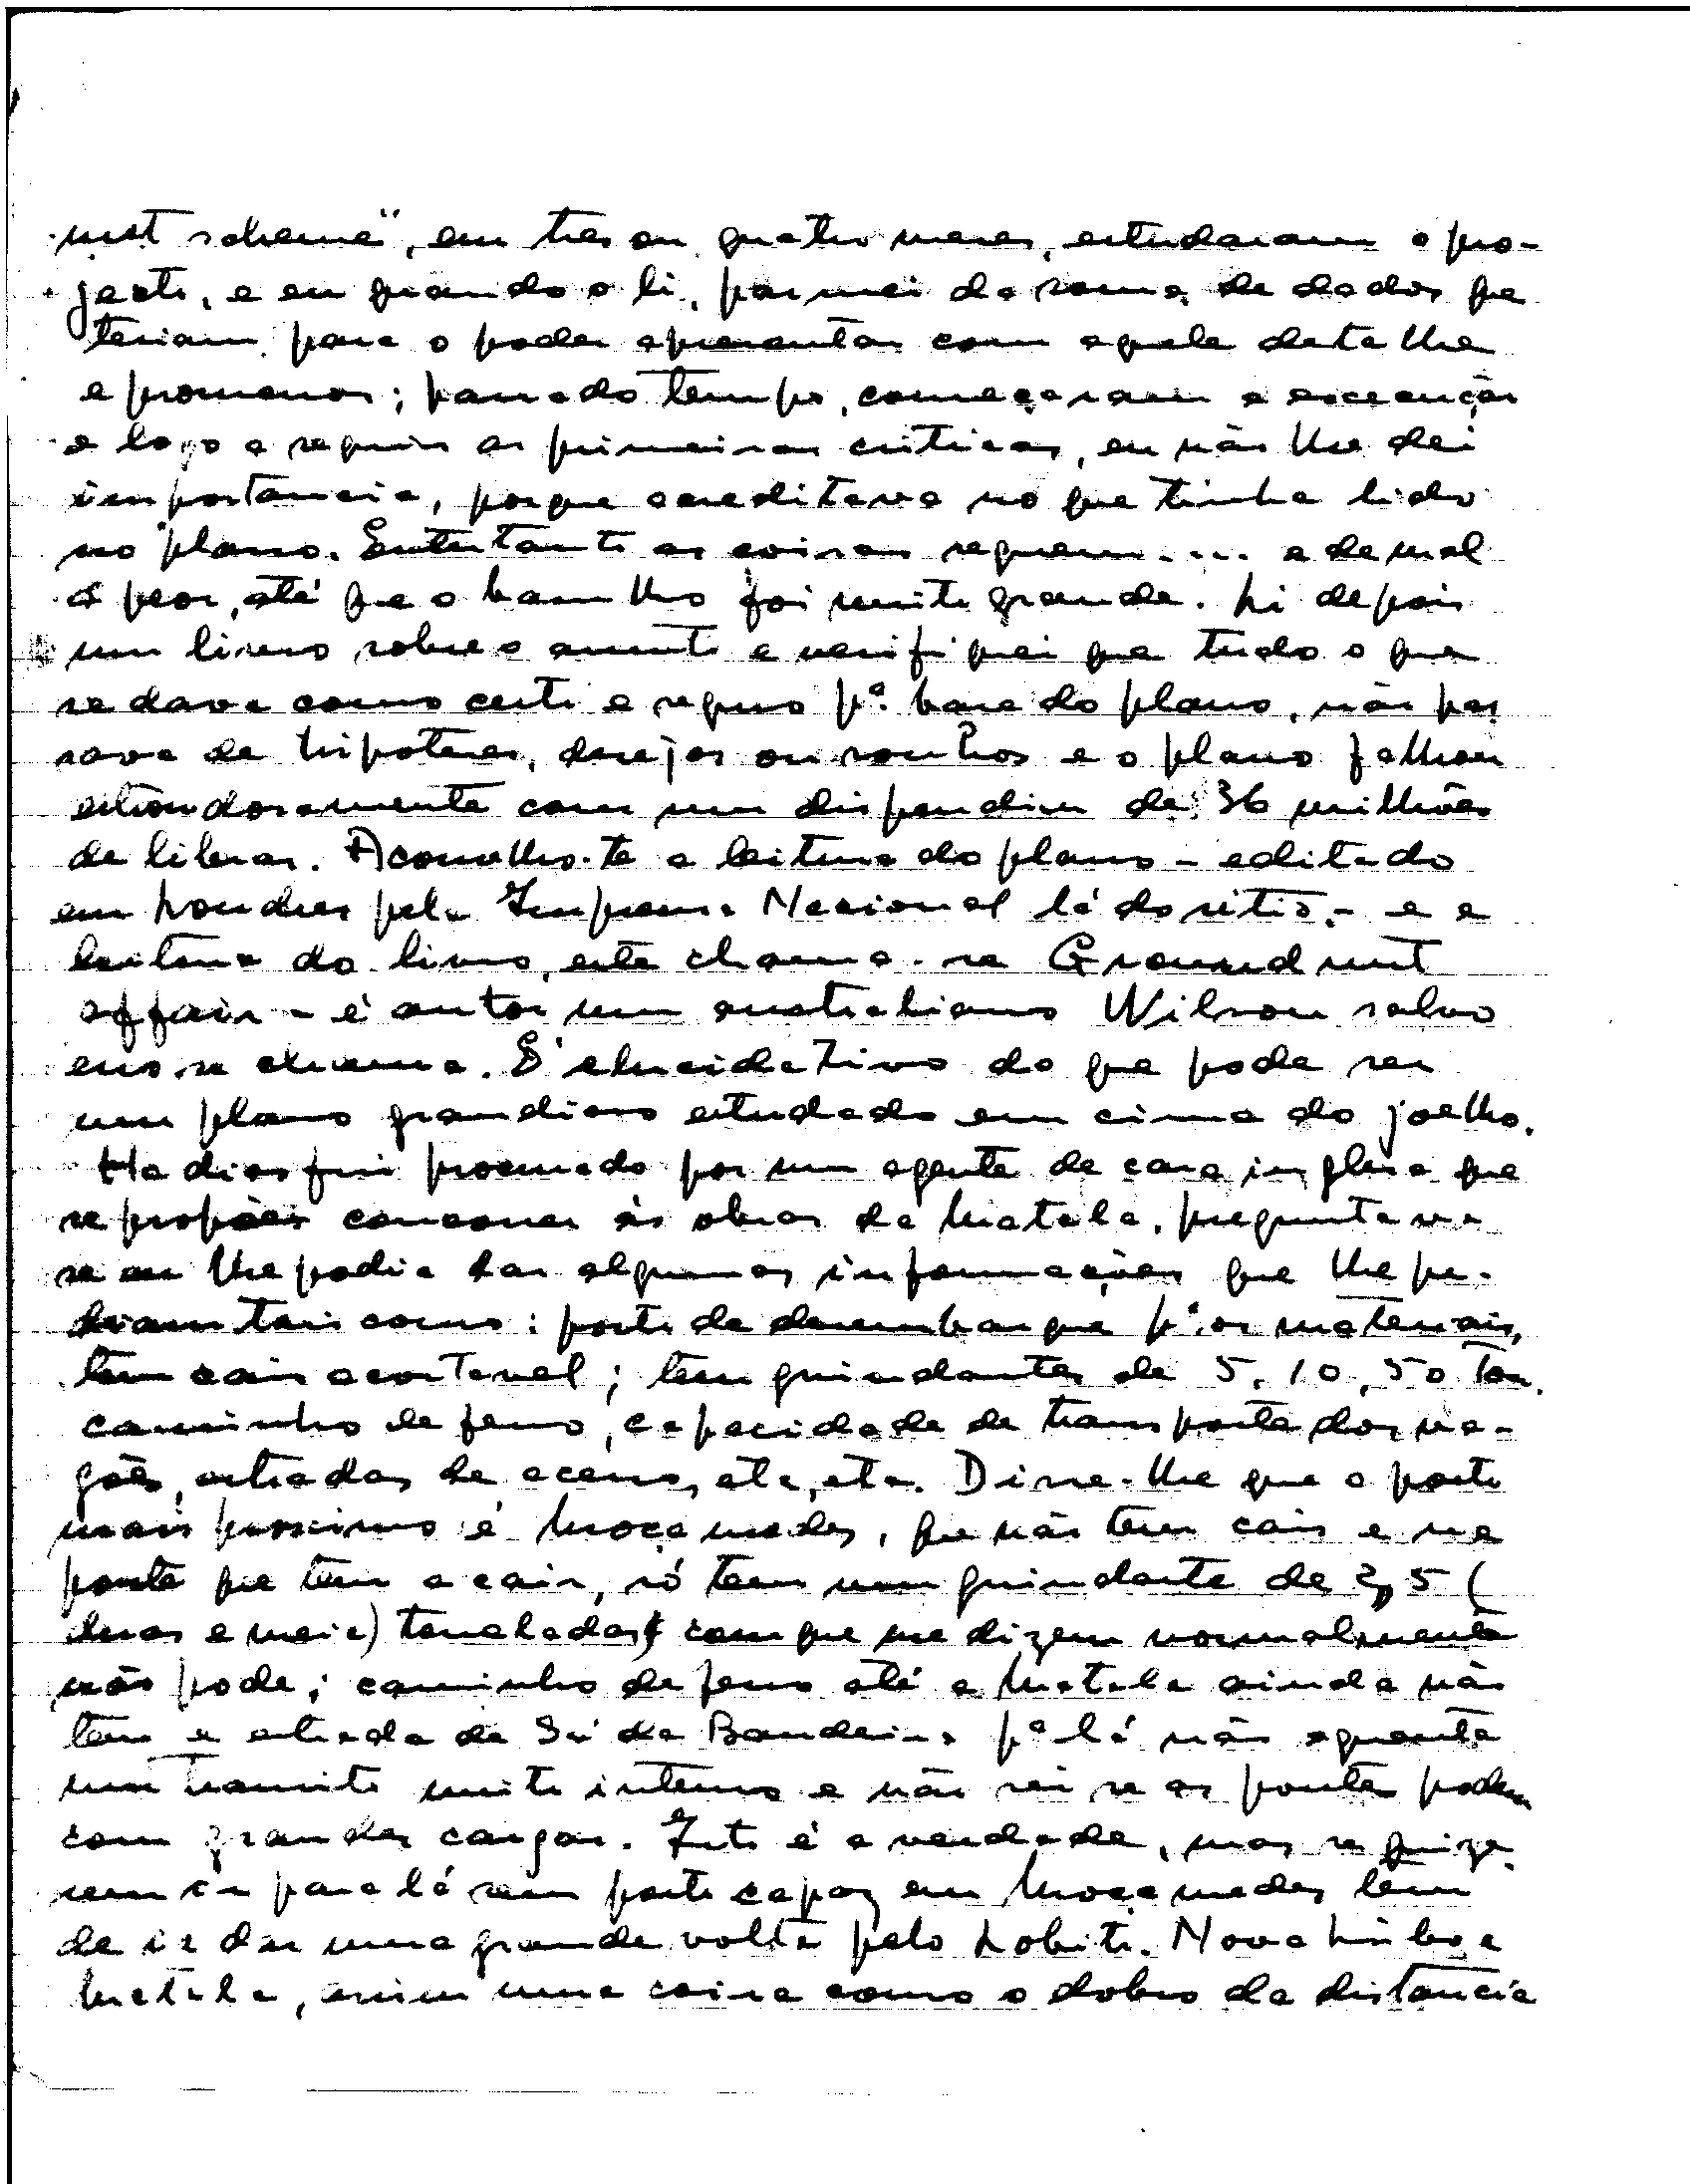 nut scheme", em tres ou quatro meses, estudaram o pro-
jecto, e eu quando o li, pasmei da soma de dados que
teriam para o poder apresentar com aquele detalhe
e promenor; passado tempo, começaram a execução
e logo a seguir as primeiras criticas, eu não lhe dei
importancia, porque acreditava no que tinha lido
no plano. Entretanto as coisas seguem .... e de mal
a peor, até que o barulho foi muito grande. Li depois
um livro sobre o assunto e verifiquei que tudo o que
se dava como certo e seguro pª. base do plano, não pas
sava de hipoteses, desejos ou sonhos e o plano falhou
estrondosamente com um dispendiu de 36 milhões
de libras. Aconselho-te a leitura do plano - editado
em Londres pela Imprensa Nacional lá do sitio - e a
leitura do livro, este chama-se Groundnut
affair - é autor um australiano Wilson salvo
erro se chama. É elucidativo do que pode ser
um plano grandioso estudado em cima do joelho.
Ha dias fui procurado por um agente de casa inglesa que
se propões concorrer ás obras da Matala, preguntava
se eu lhe podia dar algumas informações que lhe pe-
diam tais como: porto de desembarque pª. os materiais,
tem cais acostavel; tem guindastes de 5, 10, 50 Ton.
caminho de ferro, capacidade de transporte dos va-
gões, estradas de acesso, etc, etc. Disse-lhe que o porto
mais proximo é Moçamedes, que não tem cais e na
ponte que tem a cair, só tem um guindaste de 2,5 (
duas e meia) toneladas com que me dizem normalmente
não pode; caminho de ferro até a Matala ainda não
tem e estrada de Sá da Bandeira pª lá não aguenta
um transito muito intenso e não sei se as pontes podem
com grandes cargas. Isto é a verdade, mas se quize-
rem ir para lá sem porto capaz em Moçamedes tem
de ir dar uma grande volta pelo Lobito. Nova Lisboa
Matala, assim uma coisa como o dobro da distancia